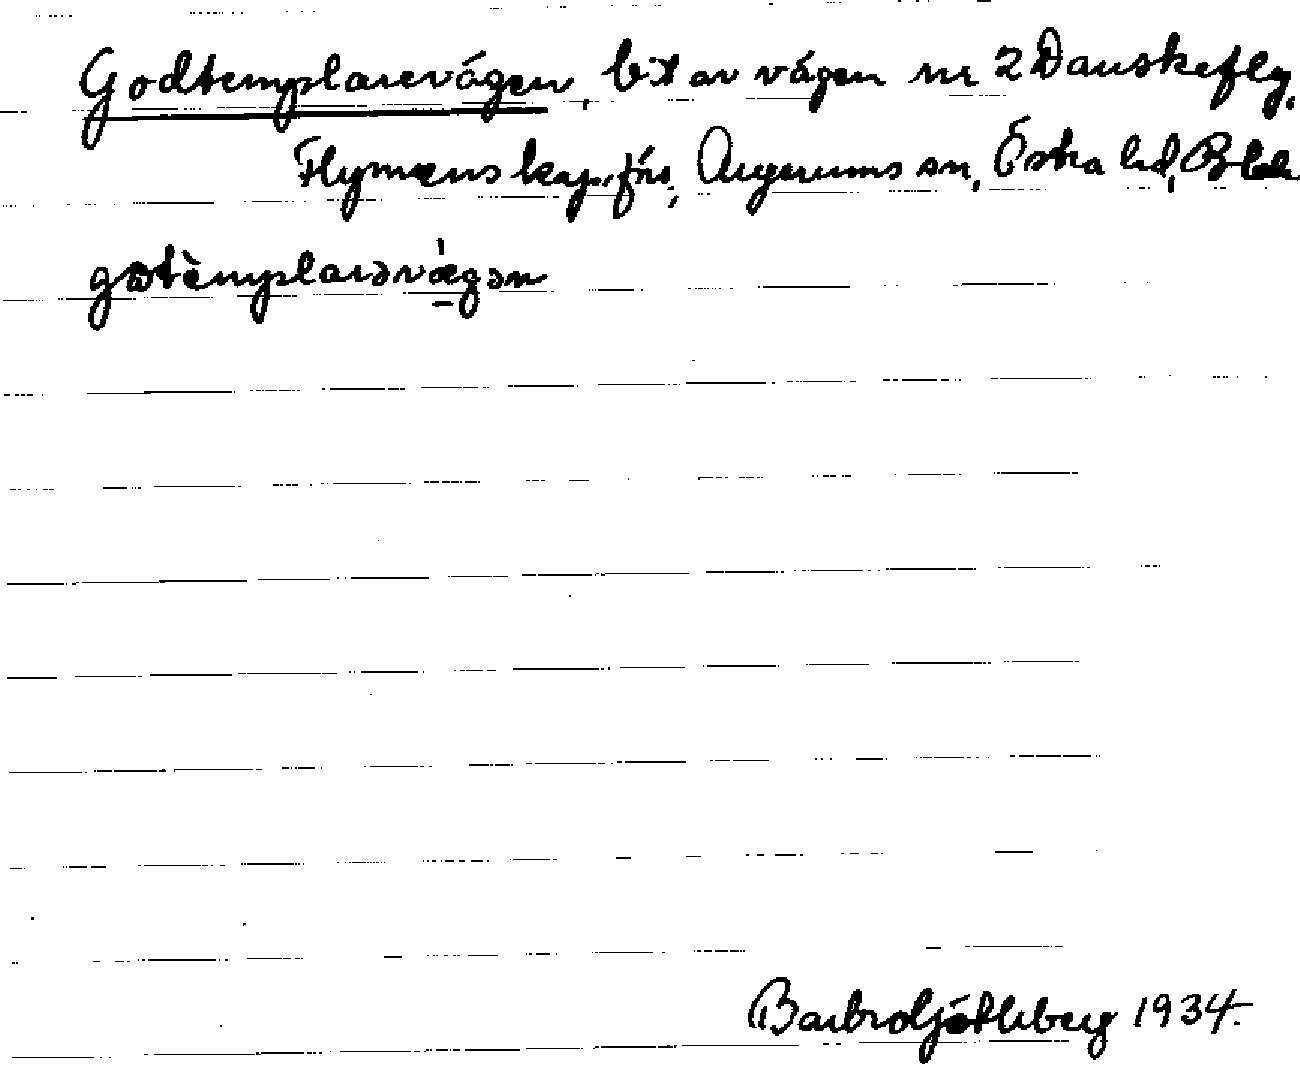 Godtemplarevägen, bit av vägen nr 2 Danskefly,
Flymens kap.förs., Augerums sn, Östra hd, Blek
godtèmplarəvæ̀gən
1934.